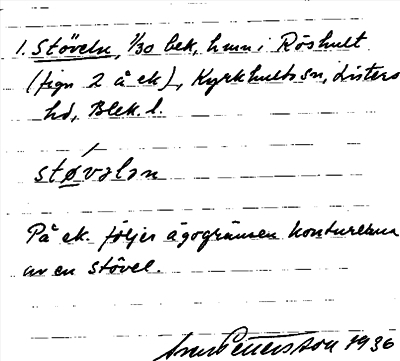 1. Stöveln, 1/30 bek. hmn i Röshult
(fign 2 å ek), Kyrkhults sn, Listers
hd, Blek. l.
støvələn
På ek. följer ägogränsen konturerna
av en stövel.
Pettersson 1936